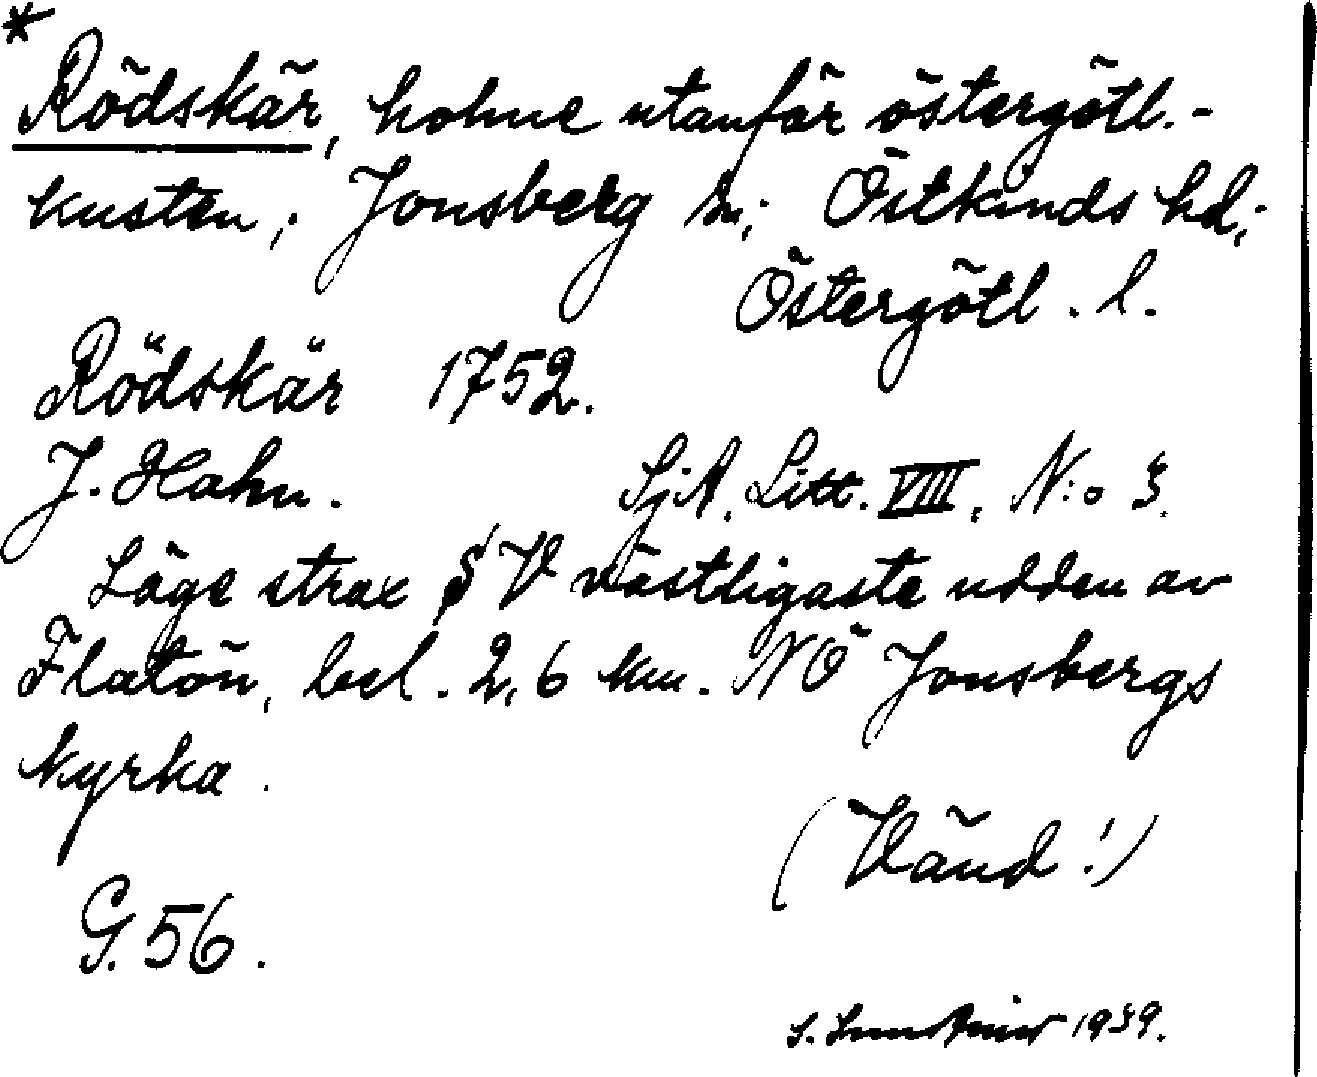 *
Rödskär, holme utanför östergötl.-
kusten; Jonsberg sn; Östkinds hd;
Östergötl. l.
Rödskär 1752.
J. Hahn. SjA. Litt. VIII. N:o 3.
Läge strax S V västligaste udden av
Flatön, bel. 2,6 km. NÖ Jonsbergs
kyrka.
(Vänd!)
G. 56.
S. 1939.